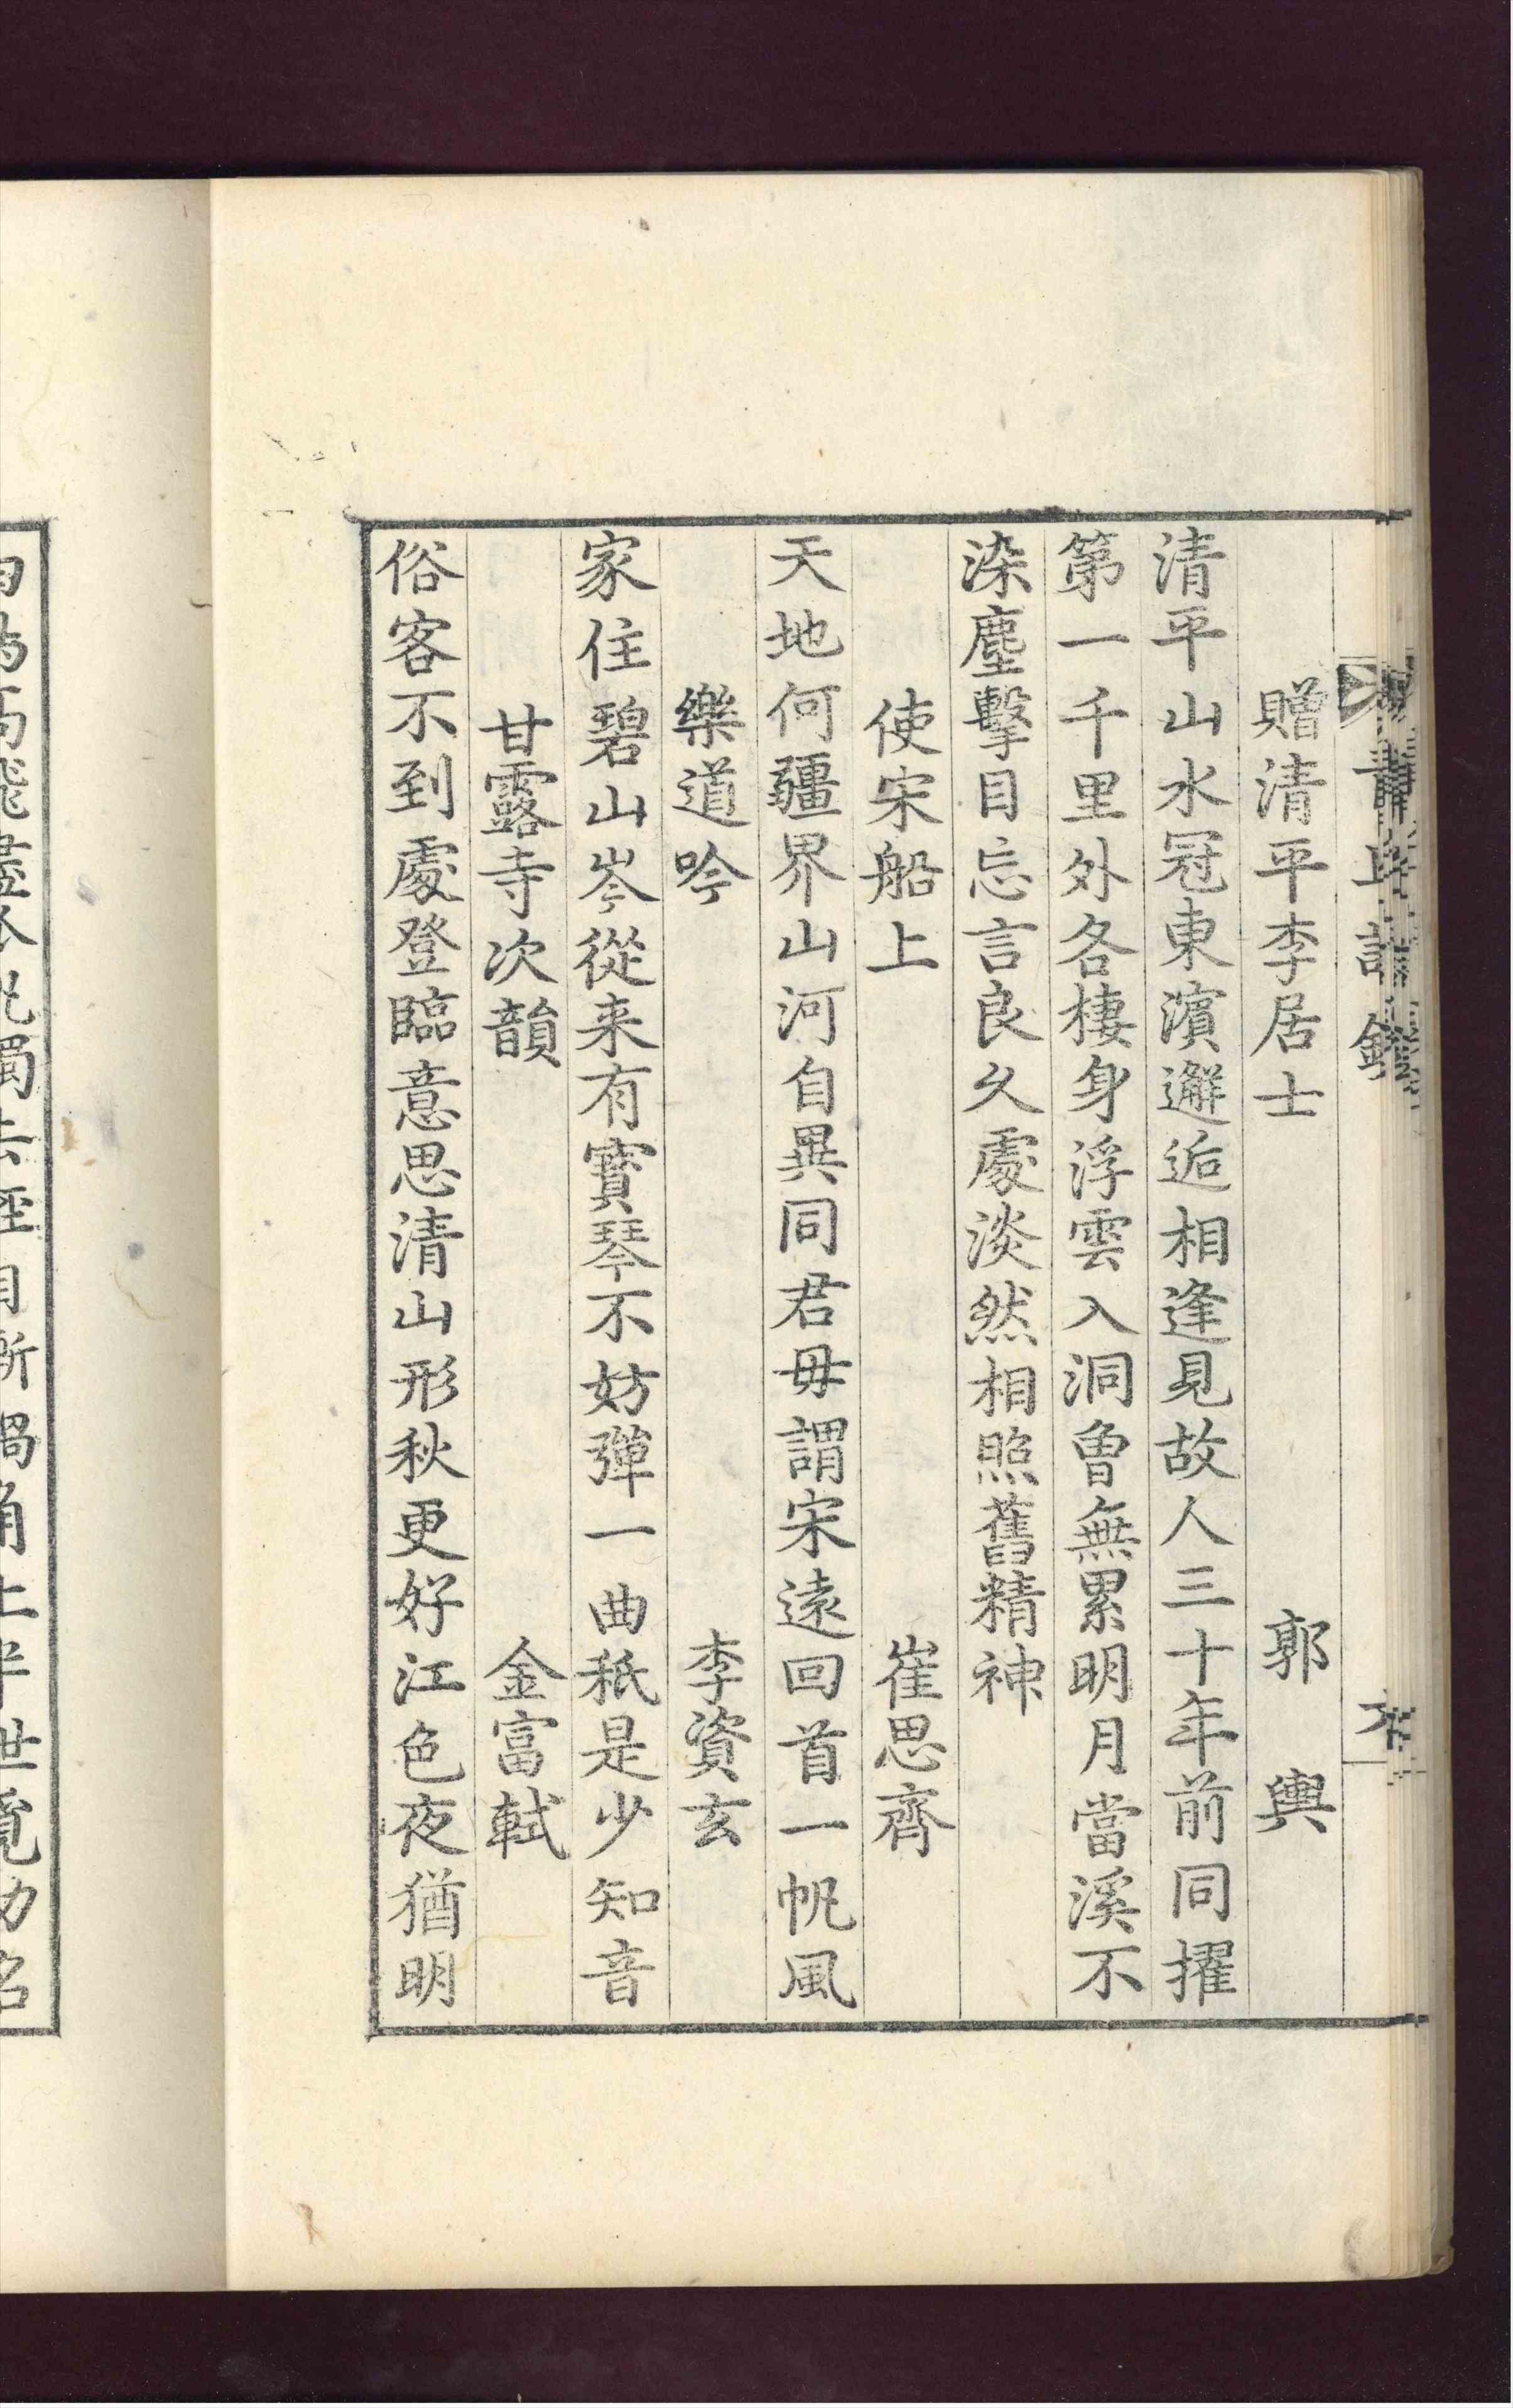 贈清平李居士 郭輿
清平山水冠東濱邂逅相逢見故人三十年前同擢
第一千里外各棲身浮雲入洞曾無累明月當溪不
染塵擊目忘言良久處淡然相照舊精神
使宋船上 崔思齊
天地何疆界山河自異同君毋謂宋遠回首一帆風
樂道吟 李資玄
家住碧山岑從来有寶琴不妨彈一曲秖是少知音
甘露寺次韻 金富軾
俗客不到處登臨意思清山形秋更好江色夜猶明